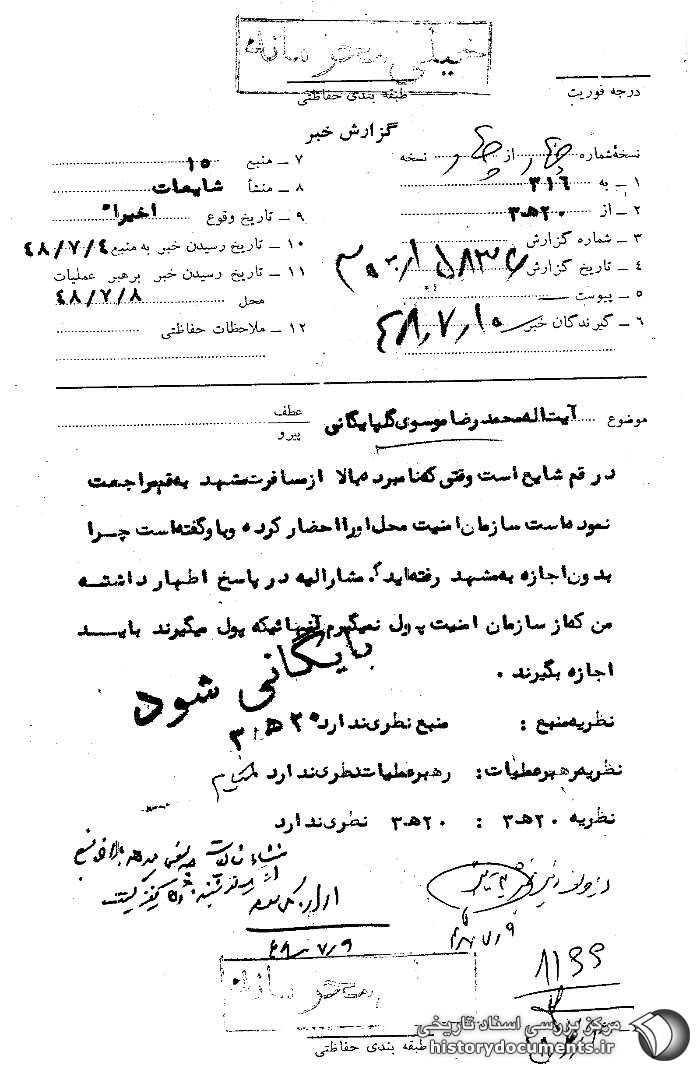 خیلی محرمانه
طبقه بندی حفاظتی
درجه فوریت
گزارش خبر
نسخهٔ شماره چهار از چهار نسخه
۱ ـ به ۳۱۶
۲ ـ از ۲۰ه۳
۳ ـ شماره گزارش
۴ ـ تاریخ گزارش
۵ ـ پیوست
۶ ـ گیرندگان خبر
۴۸٫۷٫۱۰
۷ ـ منبع ۱۵
۸ ـ منشأ شایعات
۹ ـ تاریخ وقوع اخیراً
۱۰ ـ تاریخ رسیدن خبر به منبع ۴۸/۷/۴
۱۱ ـ تاریخ رسیدن خبر برهبر عملیات
محل ۴۸/۷/۸
۱۲ ـ ملاحظات حفاظتی
موضوع آیت اله محمد رضا موسوی گلپایگانی
عطف
پیرو
در قم شایع است وقتی که نامبرده بالا از مسافرت مشهد به قم مراجعت
نموده است سازمان امنیت محل او را احضار کرده و باو گفته است چرا
بدون اجازه به مشهد رفته اید؟ مشارالیه در پاسخ اظهار داشته
من که از سازمان امنیت پول نمیگیرم آنهائیکه پول میگیرند باید
اجازه بگیرند .
بایگانی شود
نظریه منبع : منبع نظری ندارد
۲۰ه۳
نظریه رهبر عملیات : رهبر عملیات نظری ندارد
نظریه ۲۰ه۳ : ۲۰ه۳ نظری ندارد
۴۸٫۷٫۹
۴۸٫۷٫۹
محرمانه
طبقه بندی حفاظتی
مرکز بررسی اسناد تاریخی
historydocuments.ir